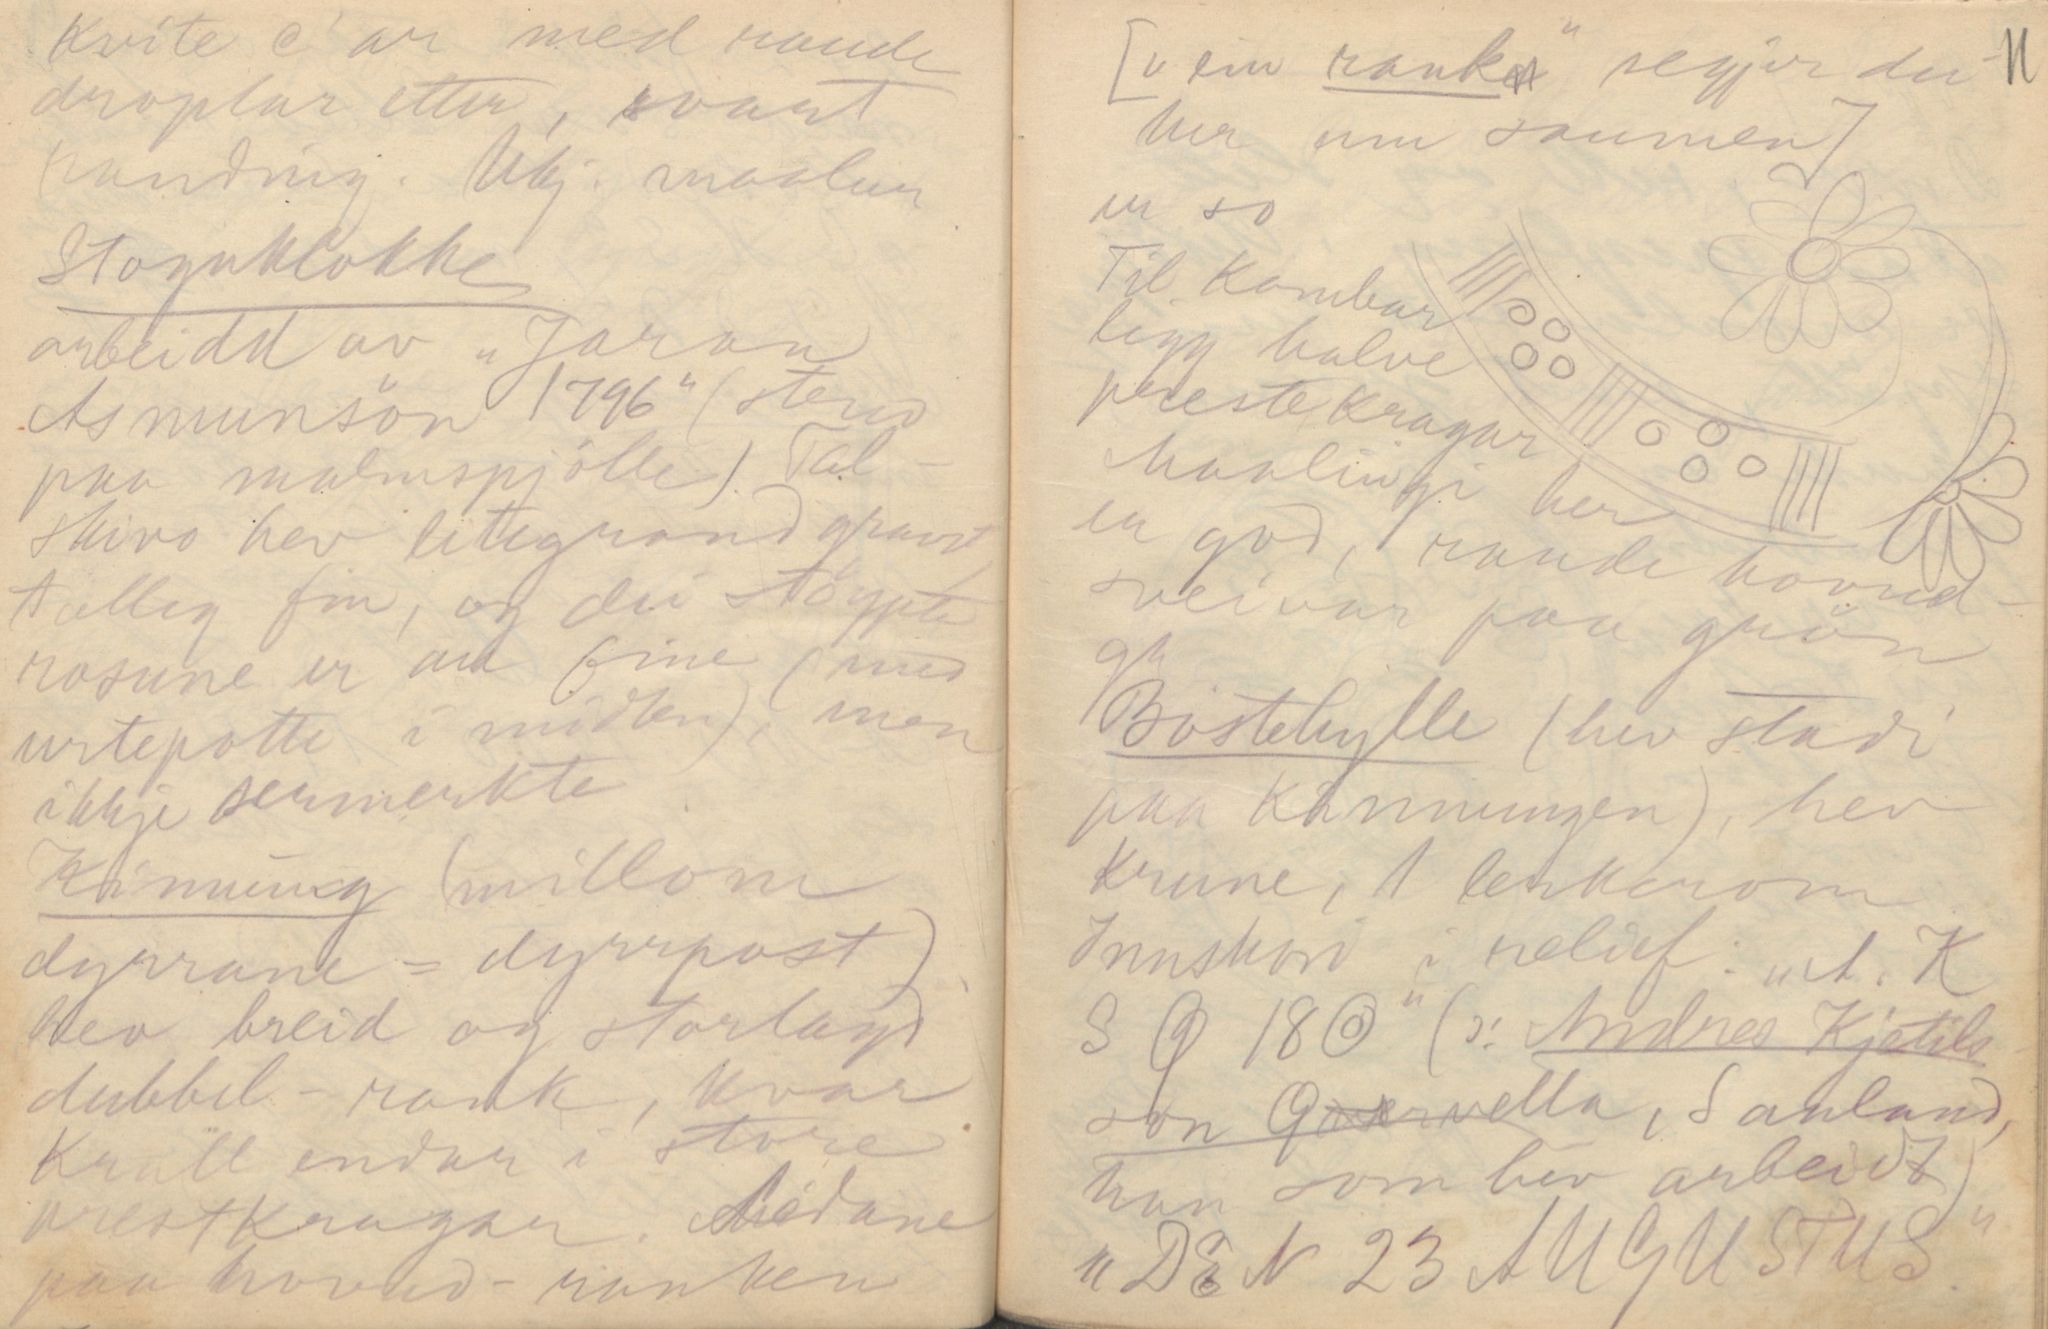 kvite c'ar med raude
droplar etter, svart
panding. Ukj. maalar
Stoguklokke
arbeidd av "Jaran
Asmunsön 1796" (stend
paa malmspjölle). Tal-
skivo hev litegrand gravst
talleg fin, og dei stöypte
rosune er au fine (med
urtepotte i midten), men
ikkje sermerkte
Kinnung (millom
dyrrane = dyrrpost)
hev breid og storlagd
dubbel-rank, kvar
kröll endar i store
prestkragar. Sidune
paa hovud-ranken
11
["ein rank" segjer dei
her um saumen]
er so
Til kambar
ligg halve
prestekragar
Maalingi her
er god, raude hovud-
sveivar paa grön
gr
Böstehylle (hev stadi
paa Kinnungen), hev
krune, 1 lenkerom
Innskori i relief: "A. K
S Q 18◎" (ɔ: Andres Kjetils
son Qvervella, Sauland,
han som hev arbeidt)
"DEN 23 AUGUSTUS"